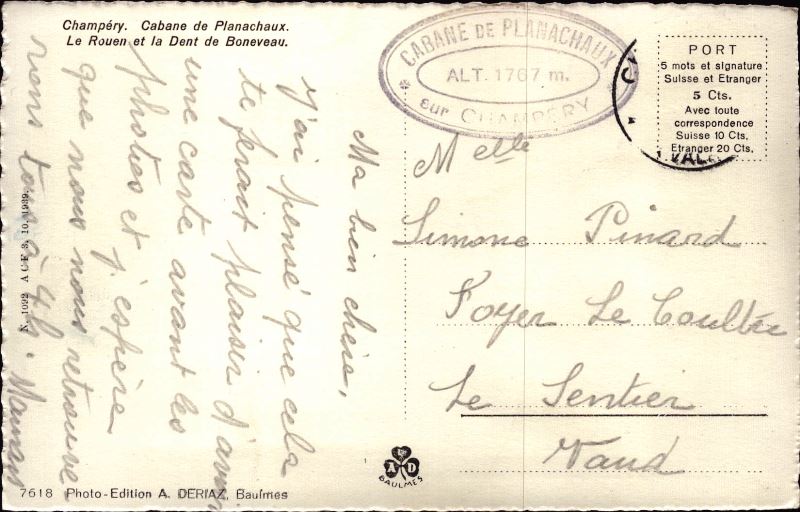 Champéry. Cabane de Planachaux.
Le Rouen et la Dent de Boneveau.
CABANE DE PLANACHAUX
ALT. 1767 m.
sur CHAMPÉRY
PORT
5 mots et signature
Suisse et Etranger
5 Cts.
Avec toute
correspondence
Suisse 10 Cts.
Etranger 20 Cts.
Ma bien chère,
J'ai pensé que cela
te ferait plaisir d'avoir
une carte avant les
photos et j'espère
que nous nous retrouve
rons tous à 4h. Maman
Melle
Simone Pinard
Foyer Le Coultre
Le Sentier
Vaud
N. 1092 A C F 3. 10. 1939.
A D
BAULMES
7618 Photo-Edition A. DERIAZ, Baulmes